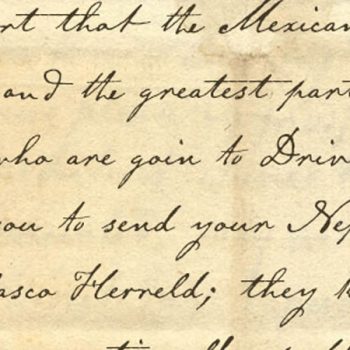 rt that the Mexican
and the greatest part
who are goin to Drin
you to send your Nep
asco Herreld; they k